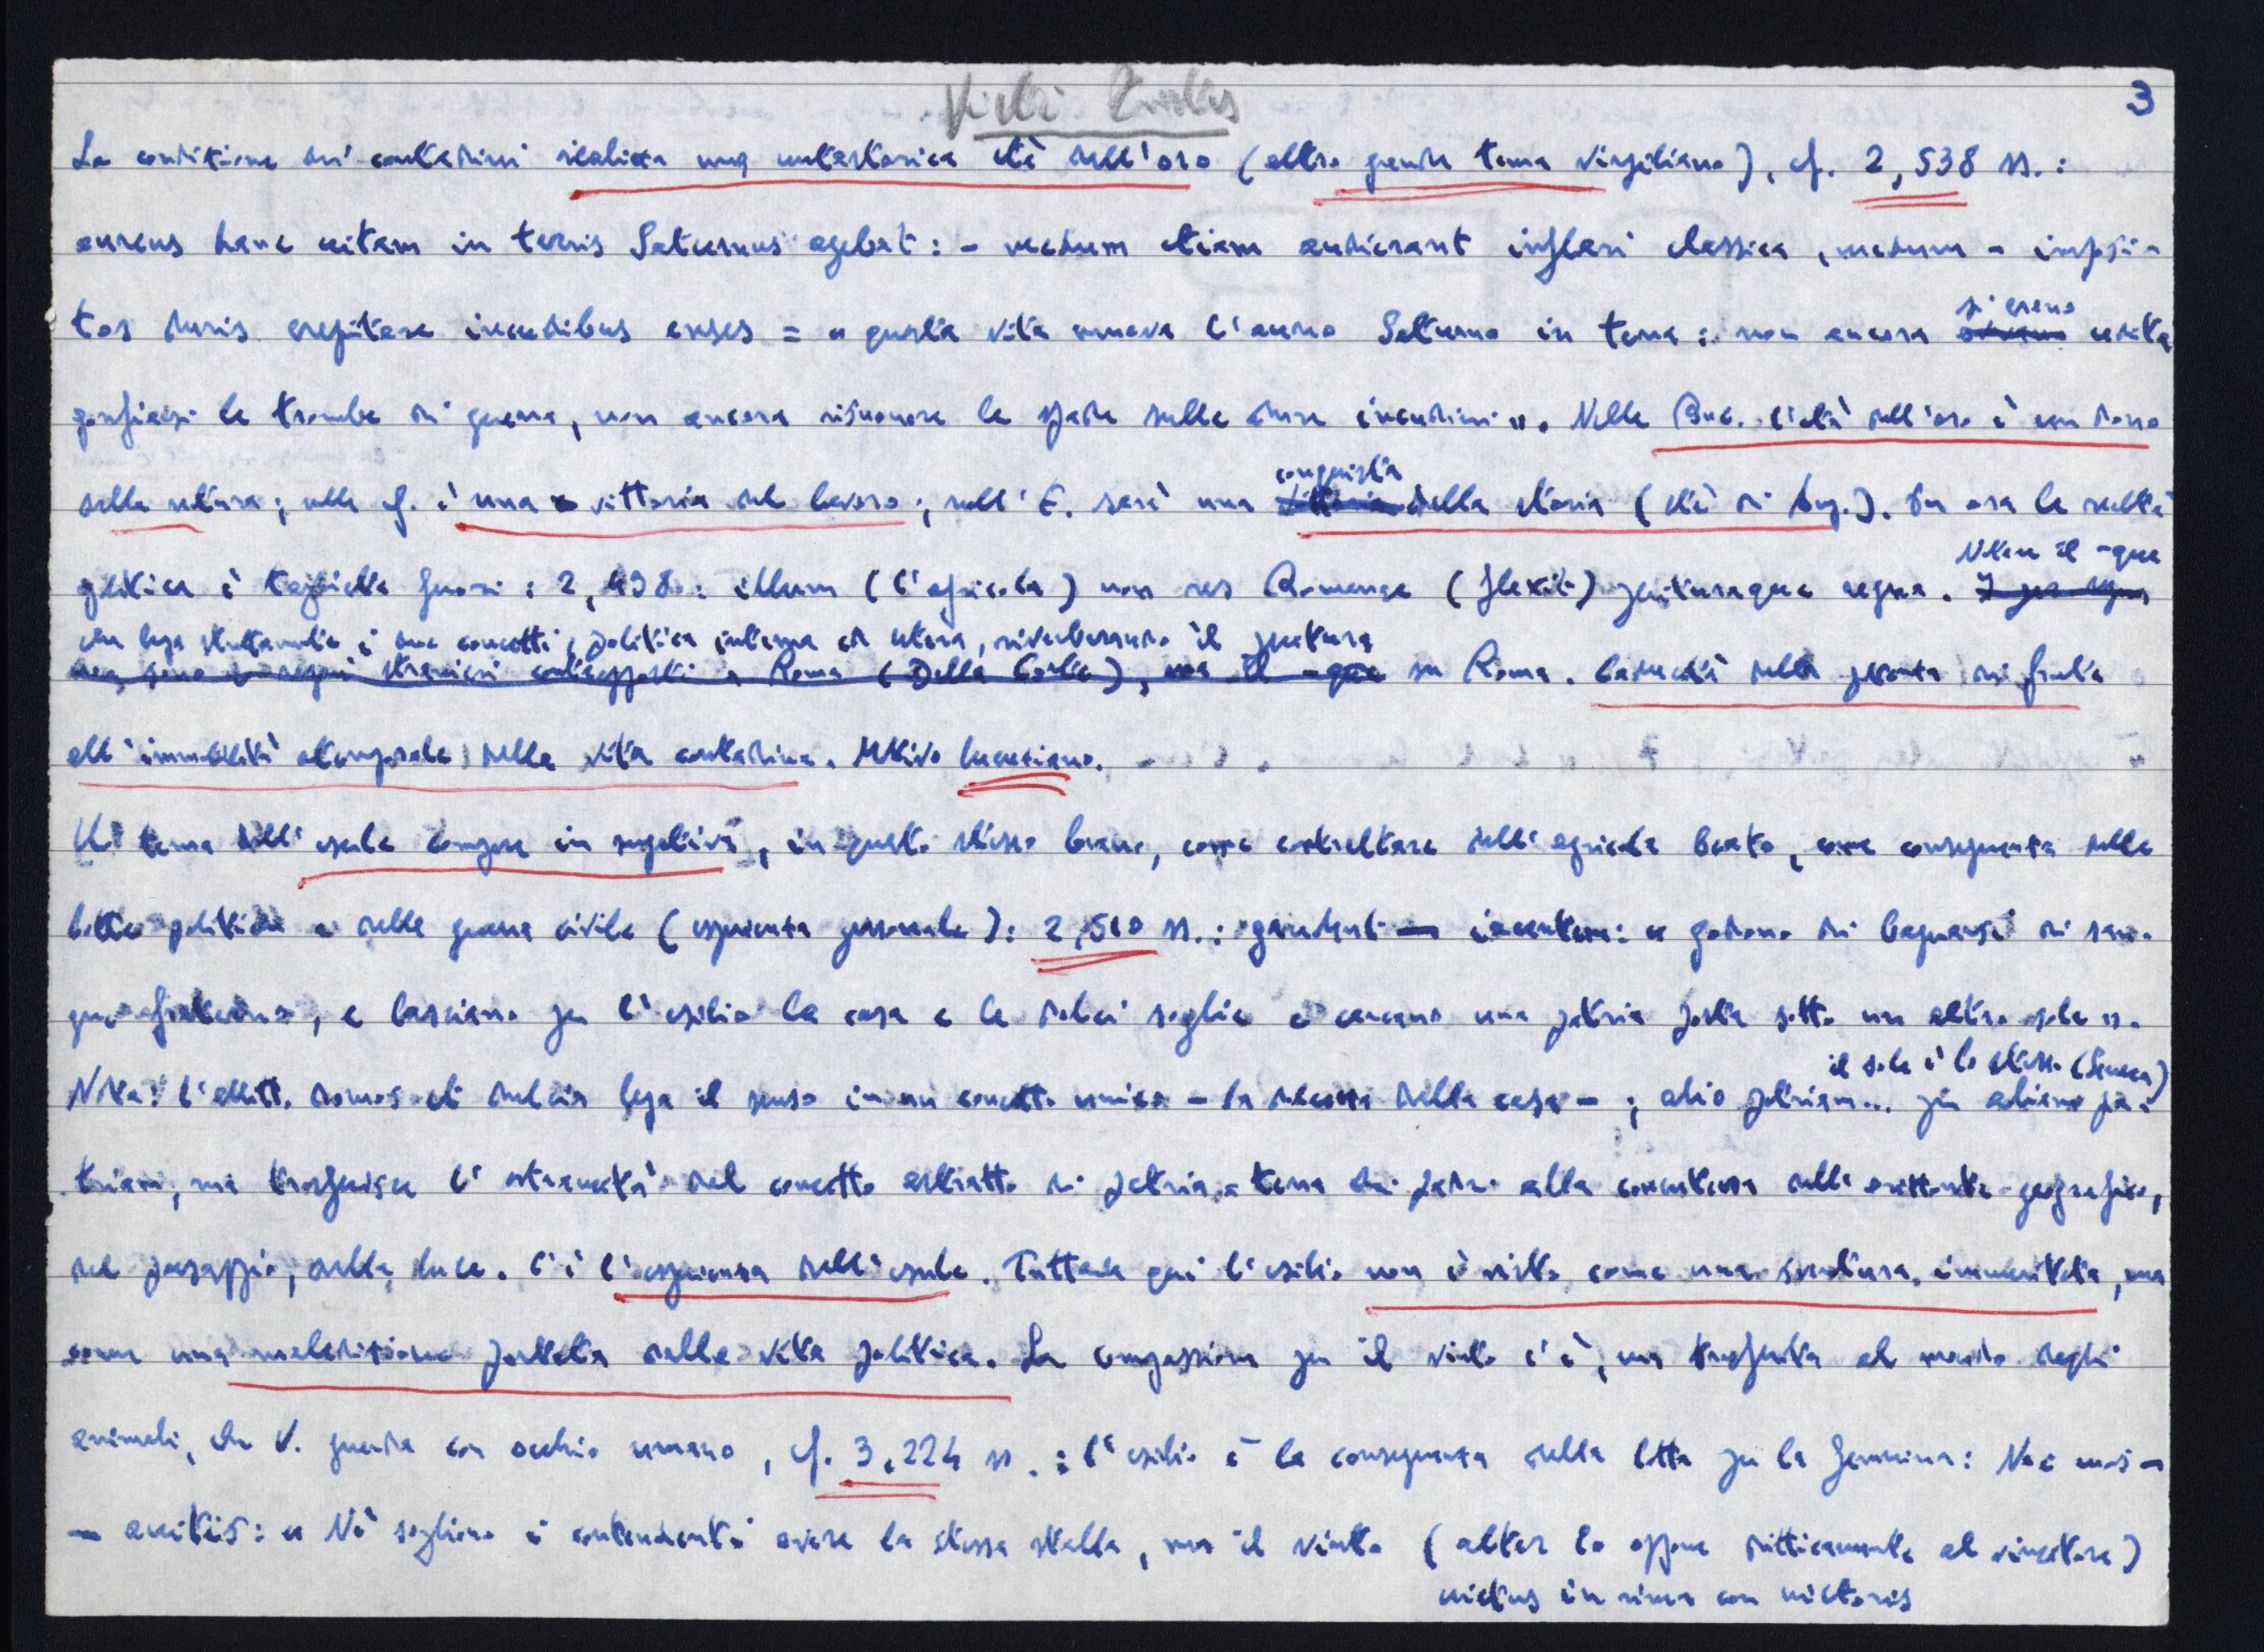 3
La condizione dei contadini realizza una metastorica età dell'oro (altro grande tema virgiliano), cf. 2, 538 ss.:
aureus hanc vitam in terris Saturnus agebat: - necdum etiam audierant inflari classica, necdum - imposi-
tos duris crepitare incudibus enses = « questa vita menava l'aureo Saturno in terra: non ancora si erano udite
gonfiarsi le trombe di guerra, non ancora risuonare le spade sulle dure incudini ». Nelle Buc. l'età dell'oro è un dono
della natura; nelle G. è una vittoria del lavoro; nell'E. sarà una conquista della storia (età di Aug.). Per ora la realtà
politica è tagliata fuori: 2, 498: illum (l'agricola) non res Romanae (flexit) perituraque regna. Notare il -que
che lega strettamente i due concetti, politica interna ed estera, riverberando il peritura
su Roma. Caducità della potenza di fronte
all'immobilità atemporale della vita contadina. Motivo lucreziano.
Il tema dell'esule compare in negativo, in questo stesso brano, come contraltare dell'agricola beato, come conseguenza della
lotta politica e della guerra civile (esperienza personale): 2, 510 ss.: gaudent — iacentem: « godono di bagnarsi di san-
gue fraterno, e lasciano per l'esilio la casa e le dolci soglie e cercano una patria posta sotto un altro sole ».
il sole è lo stesso (Seneca)
Nota: l'allitt. domos et dulcia lega il senso in un concetto unico - la dolcezza della casa - ; alio patriam... per aliam pa-
triam, ma trasferisce l'estraneità dal concetto astratto di patria = terra dei padri alla concretezza dell'orizzonte geografico,
del paesaggio, della luce. C'è l'esperienza dell'esule. Tuttavia qui l'esilio non è visto come una sventura immeritata, ma
come una maledizione portata dalla vita politica. La compassione per il vinto c'è, ma trasferita al mondo degli
animali, che V. guarda con occhio umano, cf. 3, 224 ss.: l'esilio è la conseguenza della lotta per la femmina: Nec mos -
— avitis: « Né sogliono i contendenti avere la stessa stalla, ma il vinto (alter lo oppone deitticamente al vincitore)
victus in rima con victoris